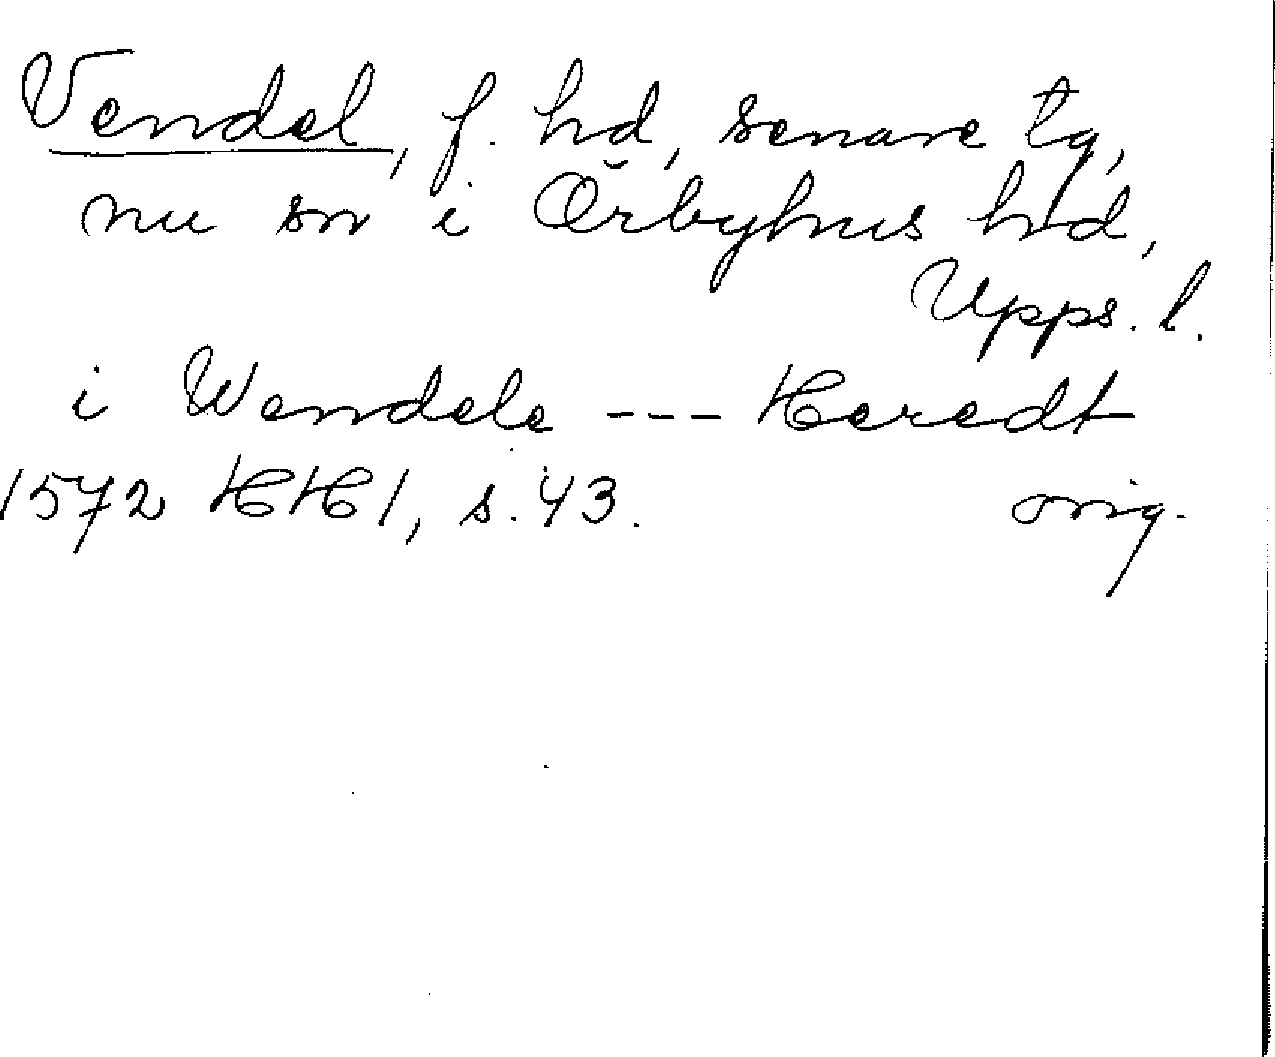 Vendel, f. hd, senare tg,
nu sn i Örbyhus hd,
Upps. l.
i Wendele --- Heredt
1572 HH 1, s. 43.
orig.